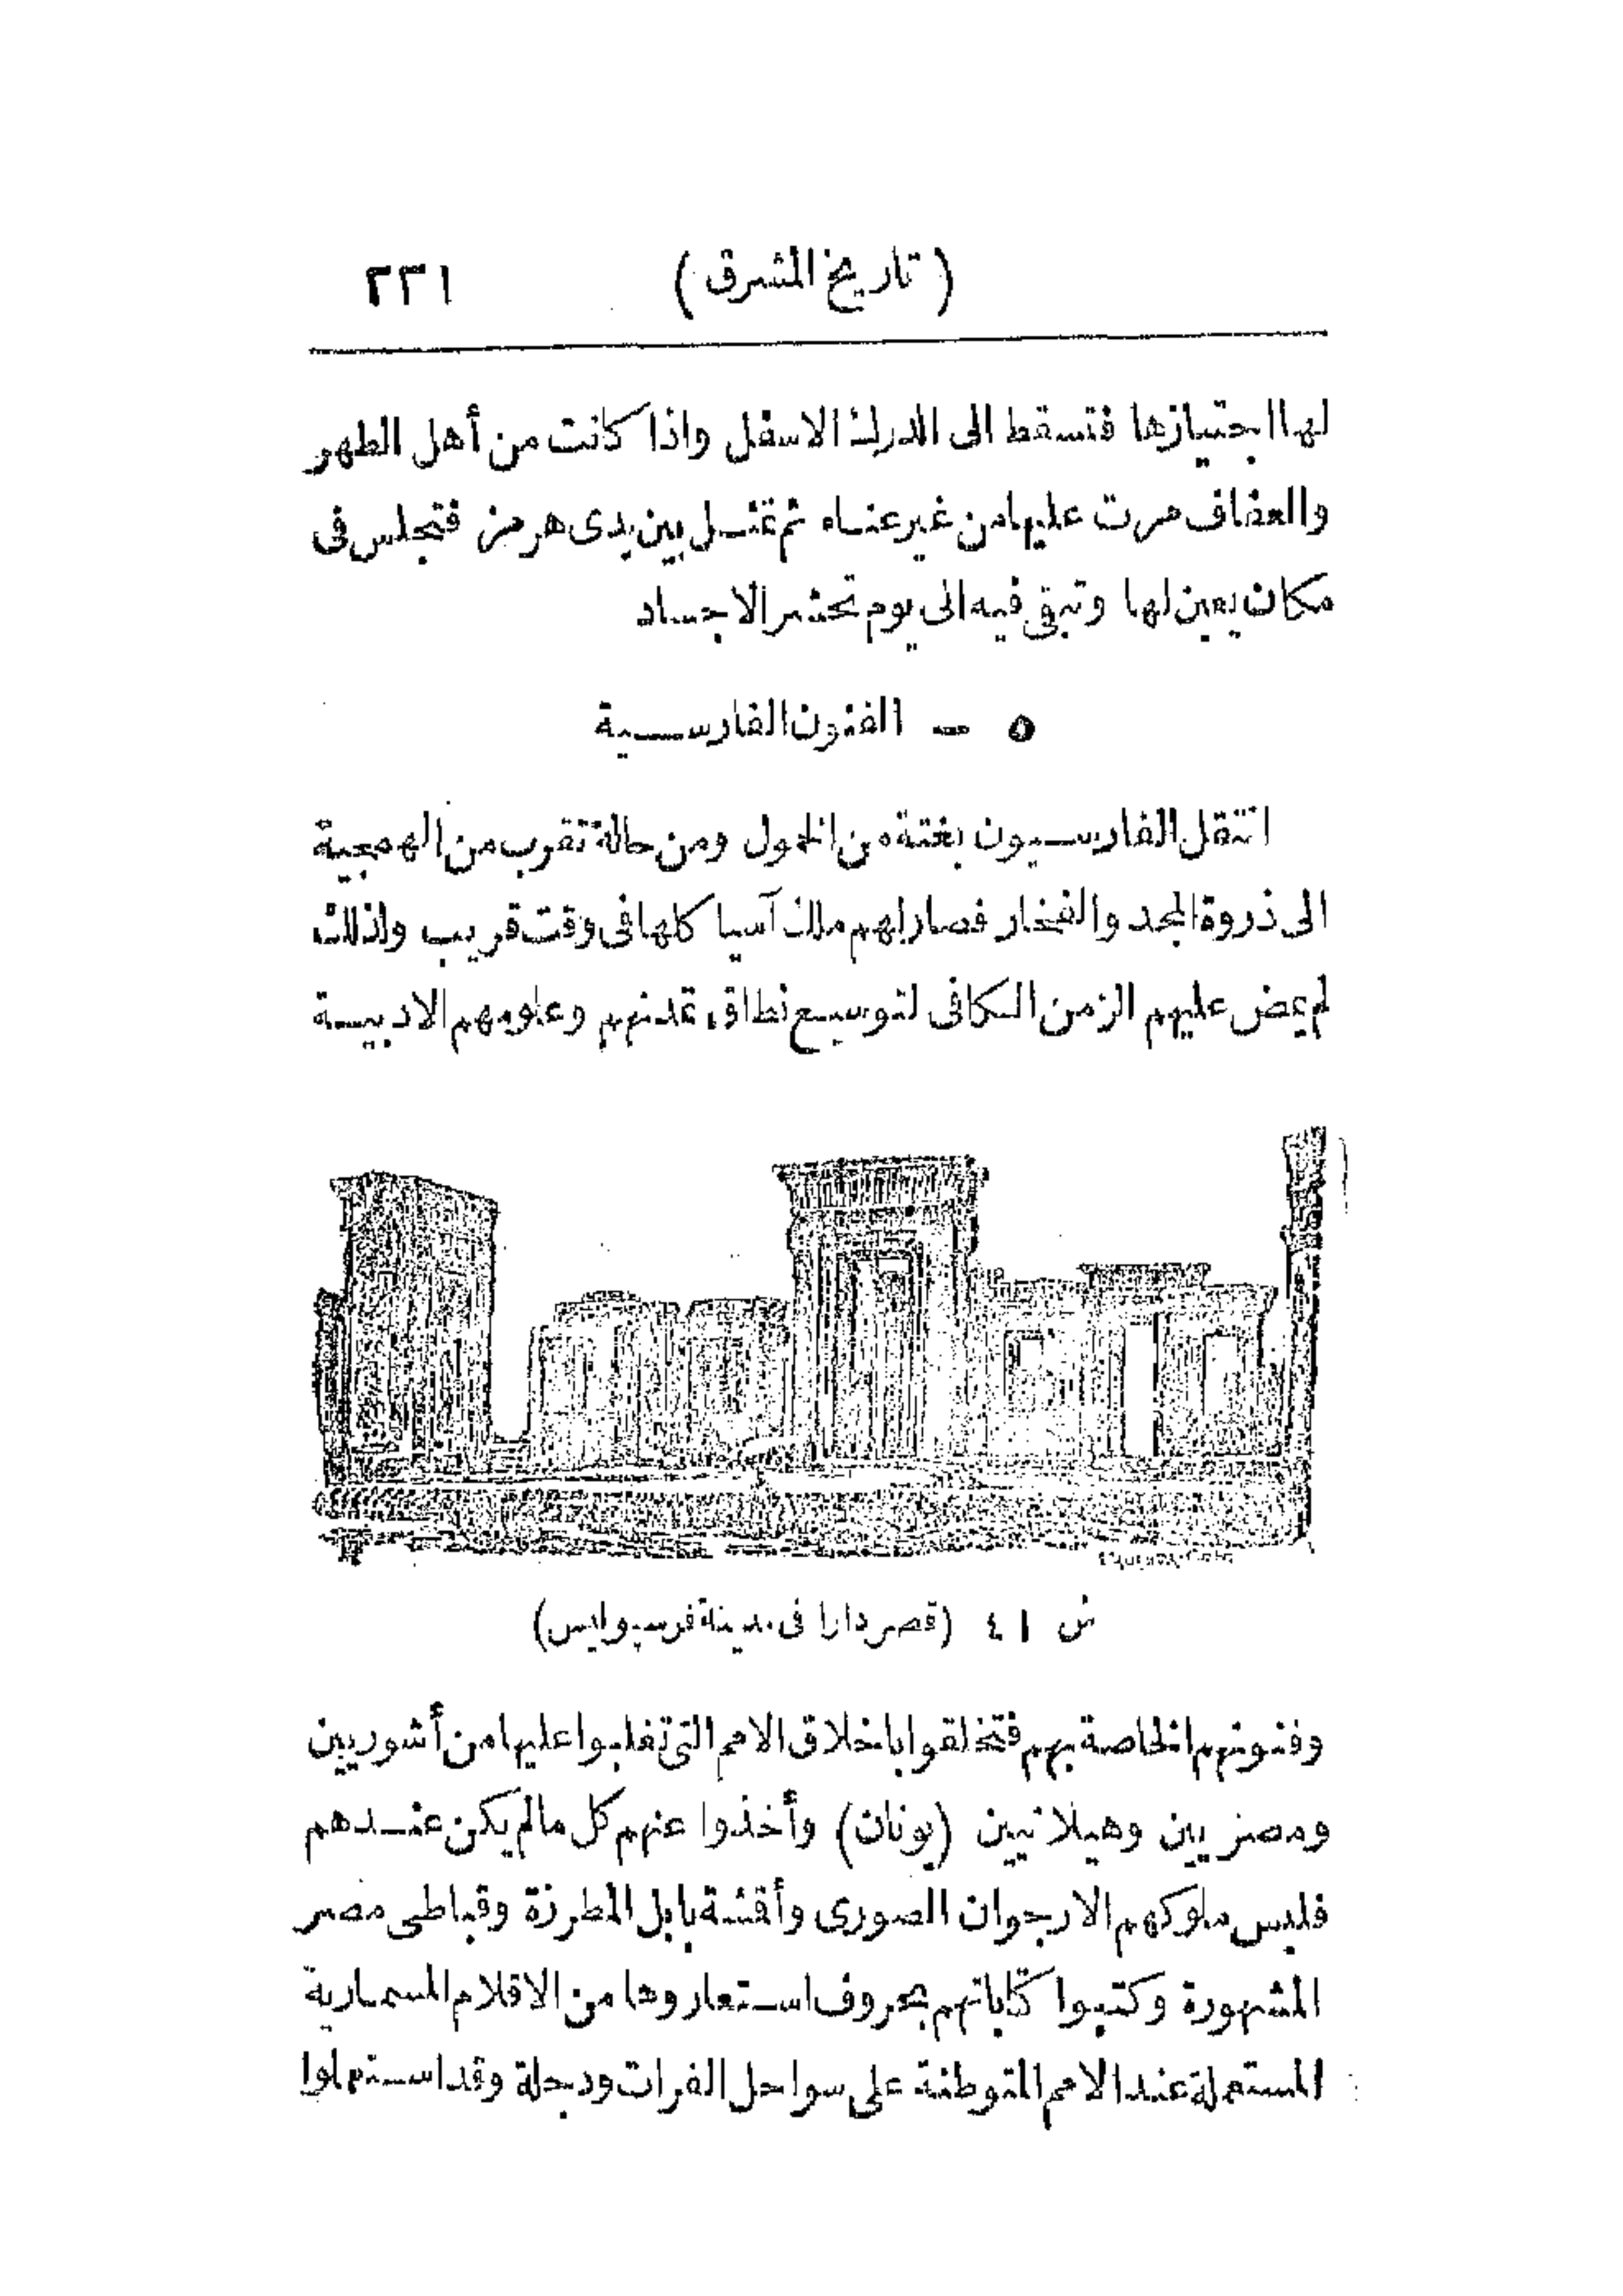 (تاريخ المشرق) ٢٣١
لها اجتيازها فتسقط الى الدرك الاسفل واذا كانت من أهل الطهر
والعفاف مرت عليها من غير عناء ثم تمثل بين يدى هرمز فتجلس فى
مكان يعين لها وتبقى فيه الى يوم تحشر الاجساد
٥ - الفنون الفارسية
انتقل الفارسيون بغتة من الخمول ومن حالة تقرب من الهمجية
الى ذروة المجد والفخار فصار لهم ملك آسيا كلها فى وقت قريب ولذلك
لم يمض عليهم الزمن الكافى لتوسيع نطاق تمدنهم وعلومهم الادبية
ش ٤١ (قصر دارا فى مدينة فرسپوليس)
وفنونهم الخاصة بهم فتخلقوا باخلاق الامم التى تغلبوا عليها من أشوريين
ومصريين وهيلانيين (يونان) وأخذوا عنهم كل مالم يكن عندهم
فلبس ملوكهم الارجوان الصورى وأقشة بابل المطرزة وقباطى مصر
المشهورة وكتبوا كتاباتهم بحروف استعاروها من الاقلام المسمارية
المستعملة عند الامم المتوطنة على سواحل الفرات ودجلة وقد استعملوا